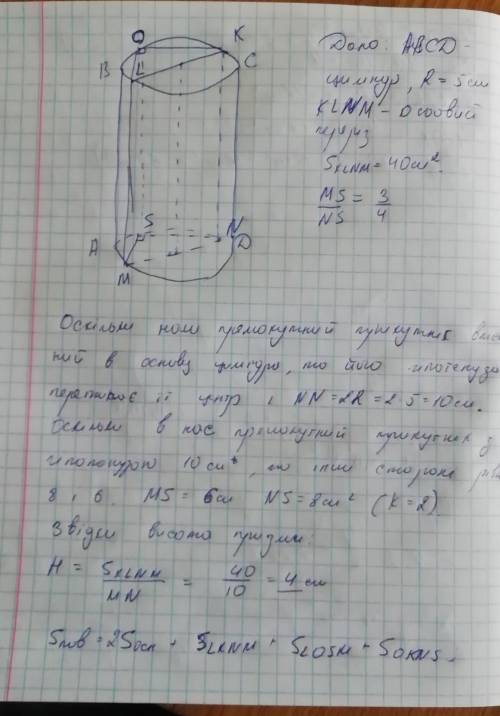 O K
B L C
S N
A D
M
Дано: ABCD -
циліндр, R = 5см
KLNM - осьовий
переріз
S KLNM = 40см²
MS/NS = 3/4
Оскільки коли прямокутний трикутник впис
ний в основу циліндра, то його гіпотенуза
перетинає її центр і NN = 2R = 2·5 = 10см.
Оскільки в нас прямокутний трикутник з
гіпотенузою 10см², то інші сторони рів
8 і 6. MS = 6см NS = 8см² (K = 2).
Звідки висота призми:
H = S KLNM / MN = 40/10 = 4см
Sпов = 2Sосн + SLKNM + SLOSM + SOKNS.